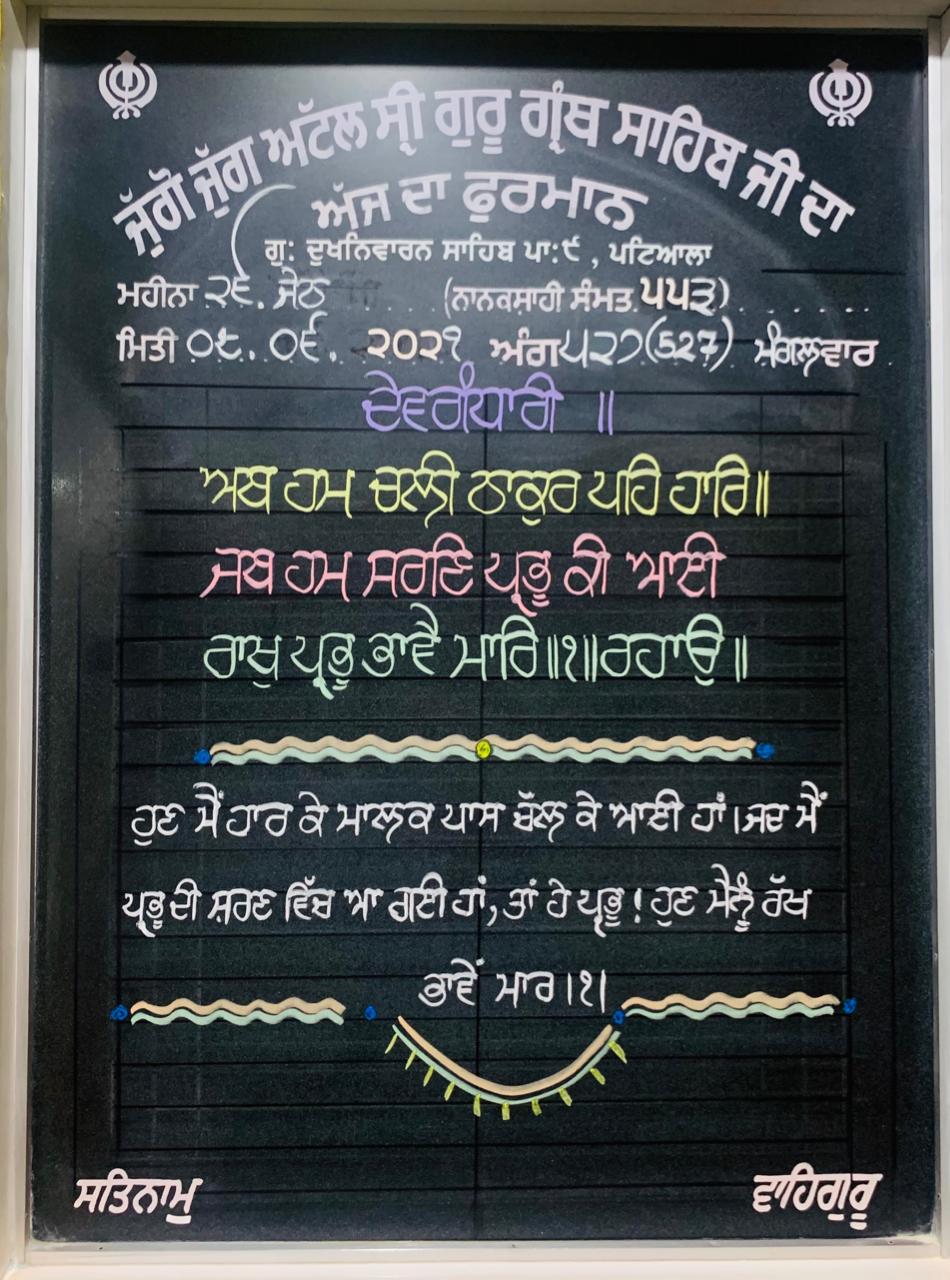 ਜੁੱਗੋ ਜੁੱਗ ਅਟੱਲ ਸ੍ਰੀ ਗੁਰੂ ਗ੍ਰੰਥ ਸਾਹਿਬ ਜੀ ਦਾ
ਅੱਜ ਦਾ ਫੁਰਮਾਨ
ਗੁ: ਦੁਖਨਿਵਾਰਨ ਸਾਹਿਬ ਪਾ:੯ , ਪਟਿਆਲਾ
ਮਹੀਨਾ ੨੬. ਜੇਠ (ਨਾਨਕਸ਼ਾਹੀ ਸੰਮਤ ੫੫੩)
ਮਿਤੀ ੦੮. ੦੬. ੨੦੨੧ ਅੰਗ ੫੨੭ (527) ਮੰਗਲਵਾਰ
ਦੇਵਗੰਧਾਰੀ ॥
ਅਬ ਹਮ ਚਲੀ ਠਾਕੁਰ ਪਹਿ ਹਾਰਿ॥
ਜਬ ਹਮ ਸਰਣਿ ਪ੍ਰਭੂ ਕੀ ਆਈ
ਰਾਖੁ ਪ੍ਰਭੂ ਭਾਵੈ ਮਾਰਿ॥੧॥ਰਹਾਉ॥
ਹੁਣ ਮੈਂ ਹਾਰ ਕੇ ਮਾਲਕ ਪਾਸ ਚੱਲ ਕੇ ਆਈ ਹਾਂ।ਜਦ ਮੈਂ
ਪ੍ਰਭੂ ਦੀ ਸ਼ਰਣ ਵਿੱਚ ਆ ਗਈ ਹਾਂ, ਤਾਂ ਹੇ ਪ੍ਰਭੂ ! ਹੁਣ ਮੈਨੂੰ ਰੱਖ
ਭਾਵੇਂ ਮਾਰ।੧।
ਸਤਿਨਾਮੁ ਵਾਹਿਗੁਰੂ